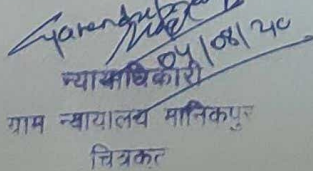 04/08/20
न्यायाधिकारी
ग्राम न्यायालय मानिकपुर
चित्रकूट